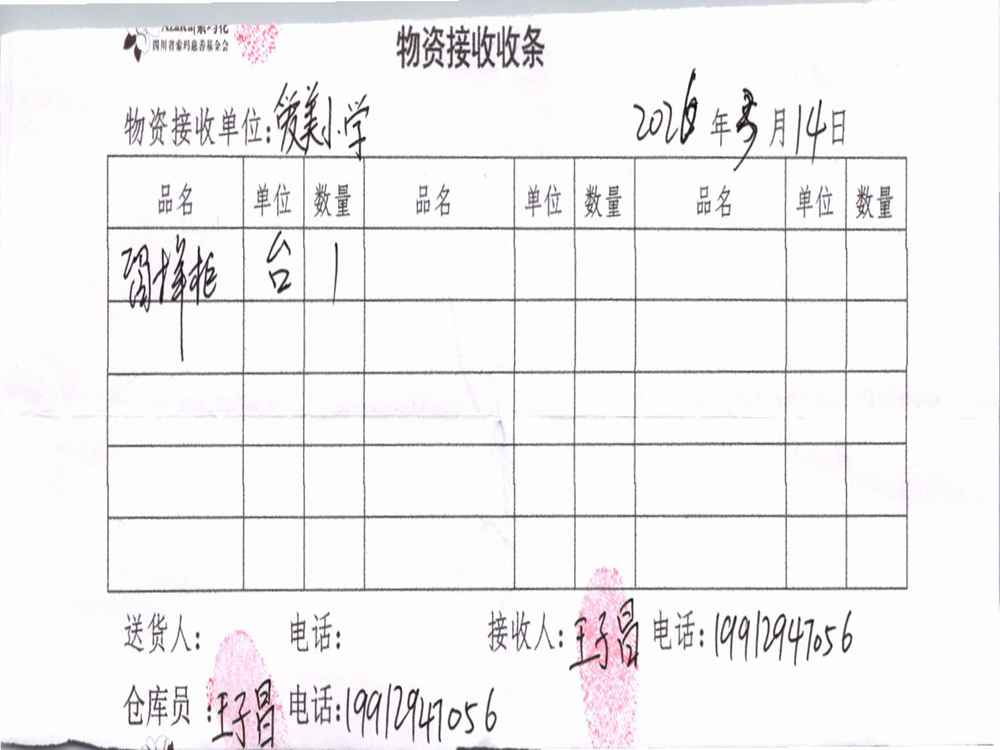 四川省索玛慈善基金会
物资接收收条
物资接收单位:爱美小学 2026年3月14日
品名 单位 数量 品名 单位 数量 品名 单位 数量
柜 台 1
送货人: 电话: 接收人:王子昌 电话:19912947056
仓库员:王子昌 电话:19912947056